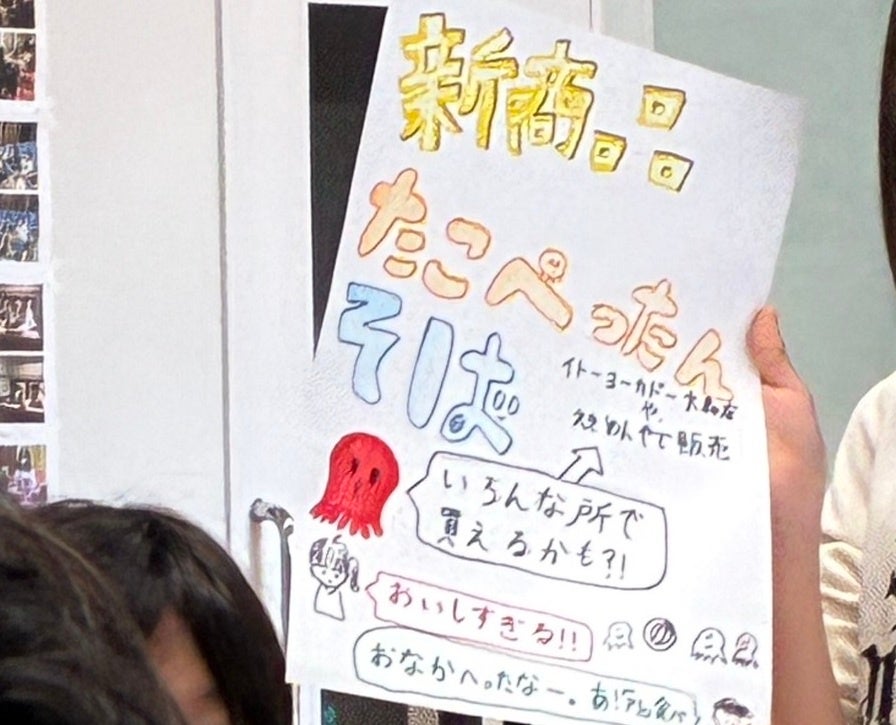 新商品
たこぺったん
そば
イトーヨーカドー大島店
や
めんやで販売
いろんな所で
買えるかも?!
おいしすぎる!!
おなかへったなー。あ!